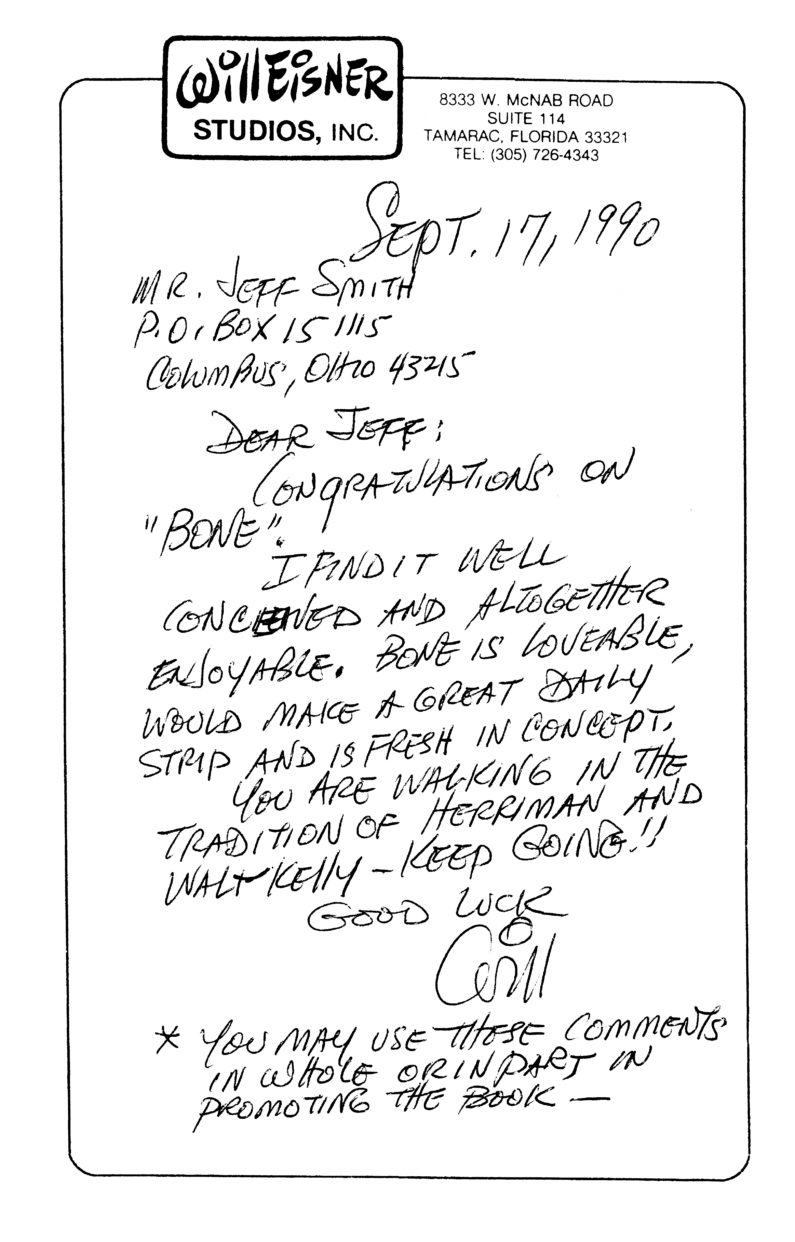 Will Eisner
STUDIOS, INC.
8333 W. McNAB ROAD
SUITE 114
TAMARAC, FLORIDA 33321
TEL: (305) 726-4343
SEPT. 17, 1990
MR. JEFF SMITH
P.O. BOX 15 1115
COLUMBUS, OHIO 43215
DEAR JEFF:
CONGRATULATIONS ON
"BONE".
I FIND IT WELL
CONCEIVED AND ALTOGETHER
ENJOYABLE. BONE IS LOVEABLE,
WOULD MAKE A GREAT DAILY
STRIP AND IS FRESH IN CONCEPT.
YOU ARE WALKING IN THE
TRADITION OF HERRIMAN AND
WALT KELLY – KEEP GOING!!
GOOD LUCK
Will
* YOU MAY USE THESE COMMENTS
IN WHOLE OR IN PART IN
PROMOTING THE BOOK —